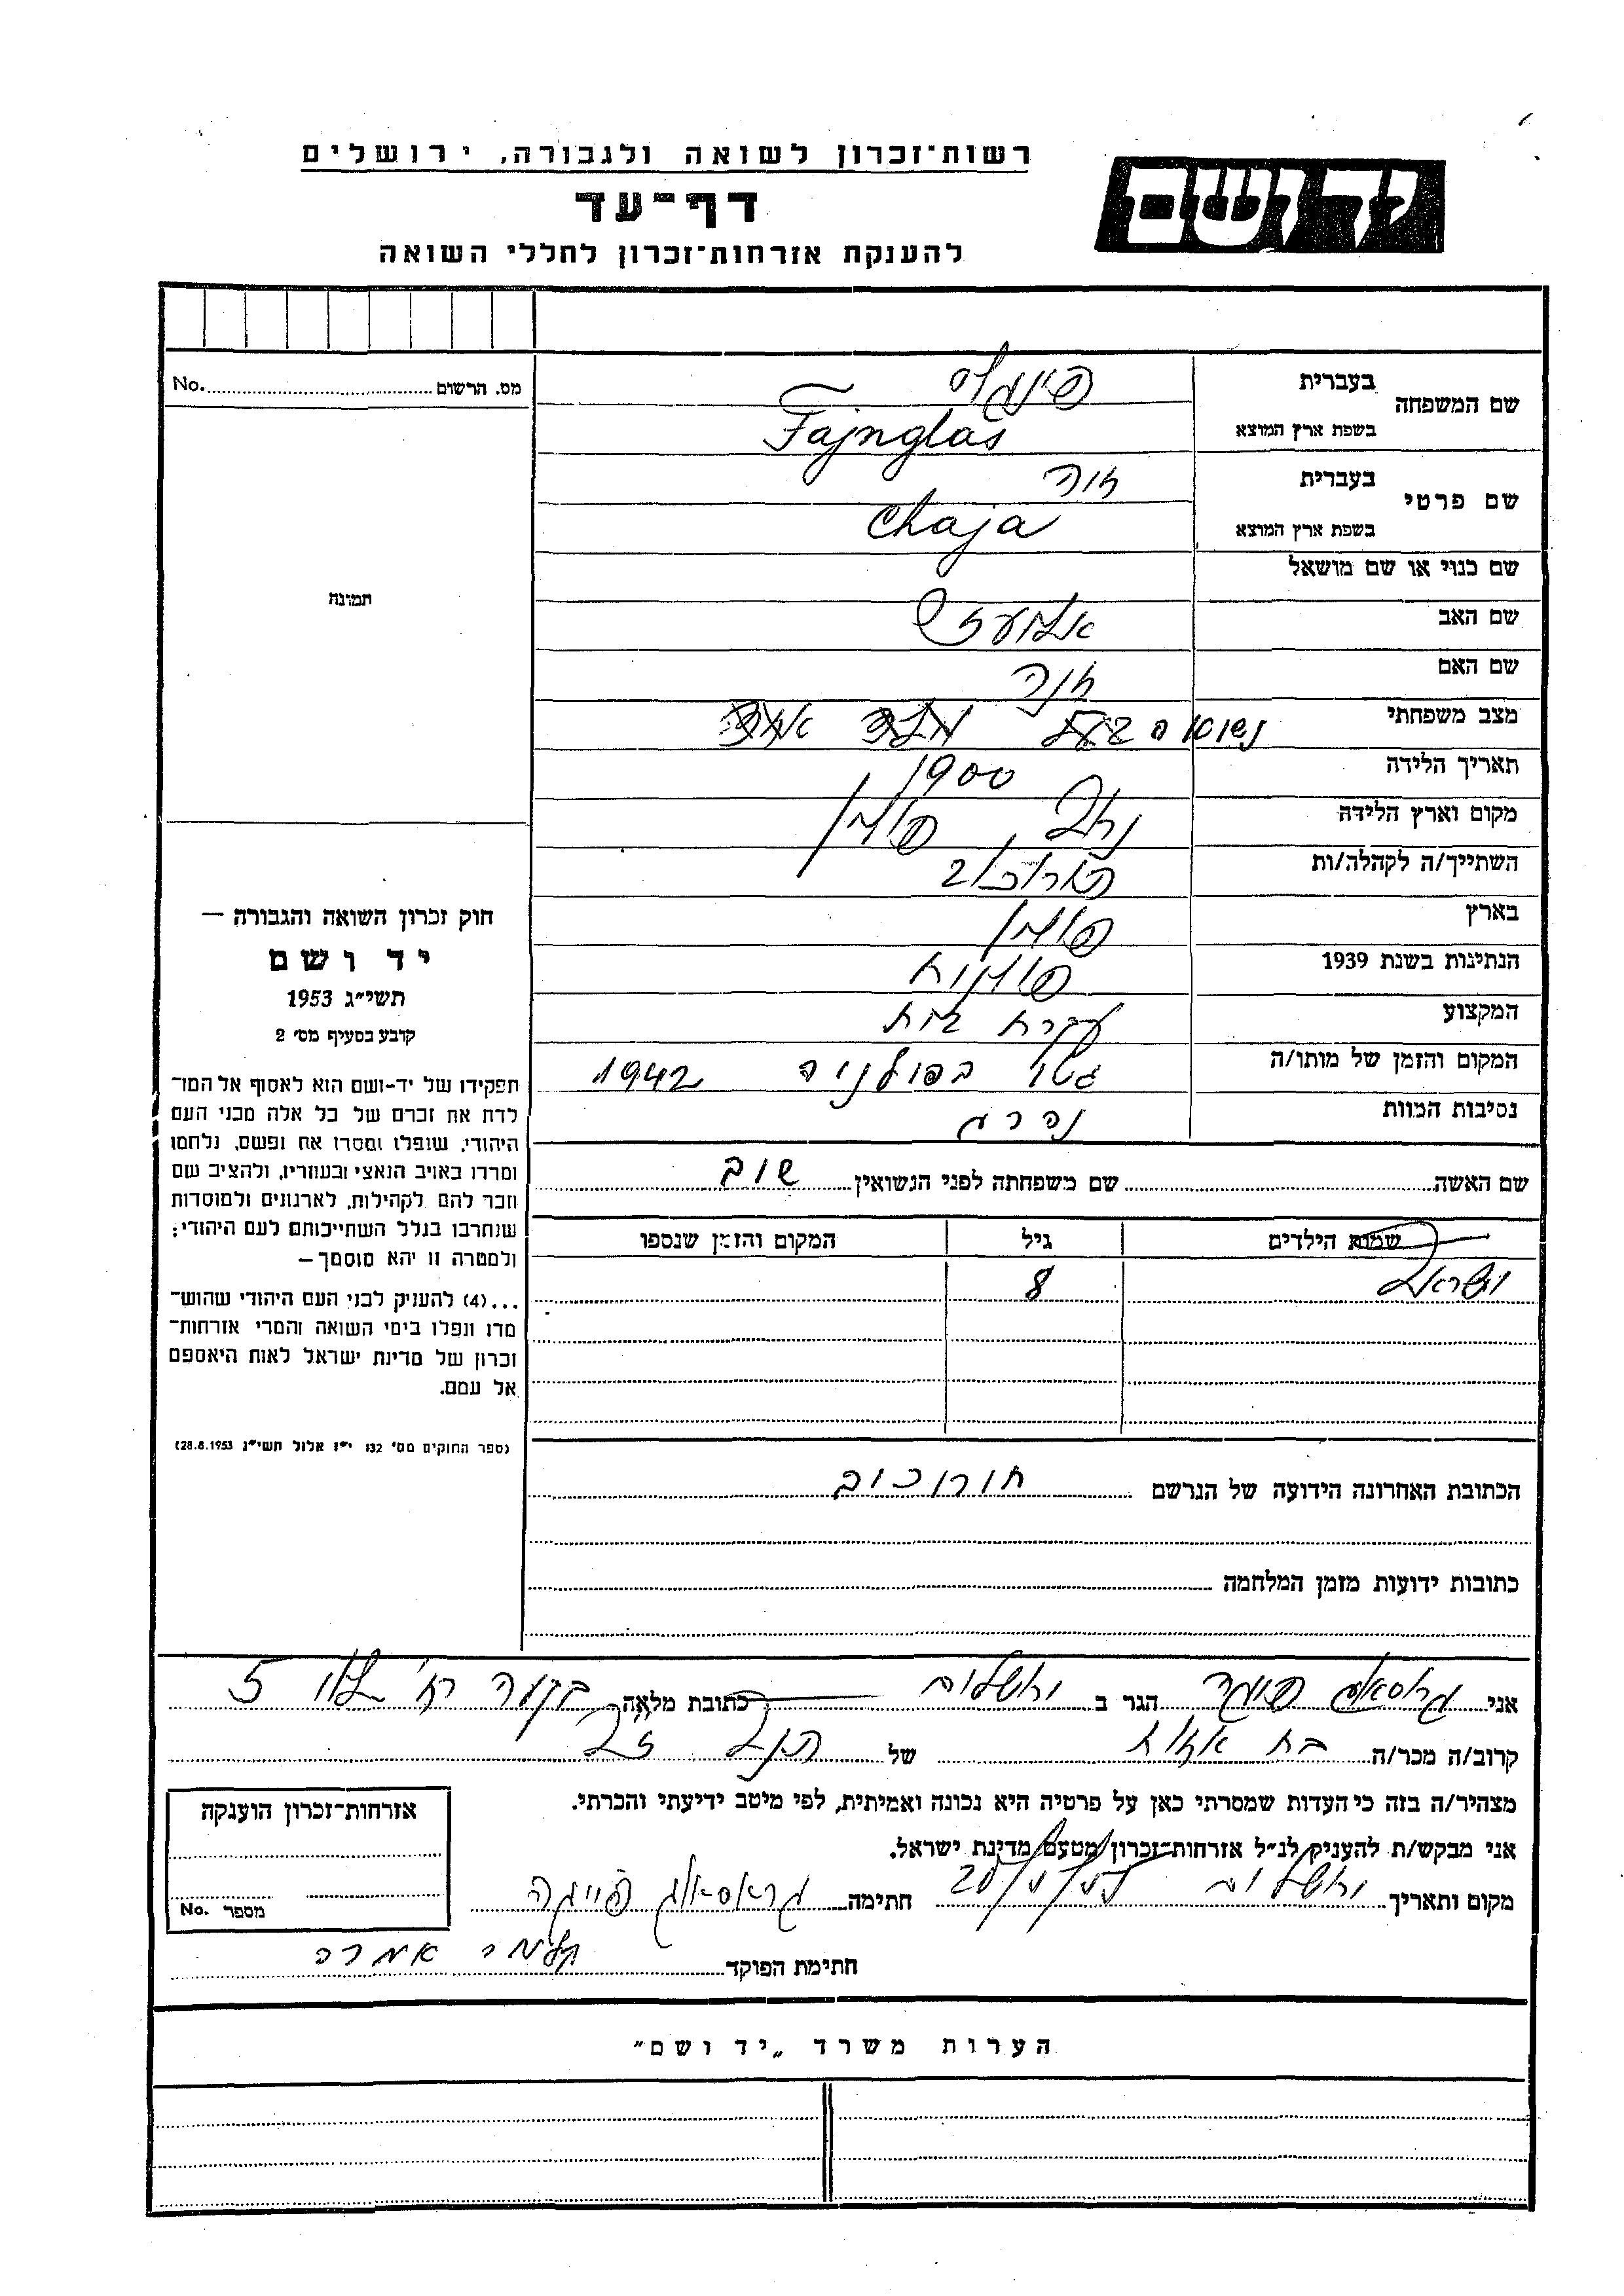 יד ושם
רשות־זכרון לשואה ולגבורה, ירושלים
דף־עד
להענקת אזרחות־זכרון לחללי השואה
שם המשפחה
בעברית פינגלס
בשפת ארץ המוצא Fajnglas
שם פרטי
בעברית חיה
בשפת ארץ המוצא Chaja
שם כנוי או שם מושאל
שם האב
שם האם חנה
מצב משפחתי נשואה
תאריך הלידה 1900
מקום וארץ הלידה פולין
השתייך/ה לקהלה/ות
בארץ פולין
הנתינות בשנת 1939 פולנית
המקצוע עקרת בית
המקום והזמן של מותו/ה גטו בפולניה 1942
נסיבות המוות נהרג
שם האשה שם משפחתה לפני הנשואין שוב
שמות הילדים גיל המקום והזמן שנספו
ישראל 8
הכתובת האחרונה הידועה של הנרשם חורוכוב
כתובות ידועות מזמן המלחמה
מס. הרשום No.
תמונה
חוק זכרון השואה והגבורה —
יד ושם
תשי״ג 1953
קובע בסעיף מס׳ 2
תפקידו של יד-ושם הוא לאסוף אל המו־
לדת את זכרם של כל אלה מבני העם
היהודי, שנפלו ומסרו את נפשם, נלחמו
ומרדו באויב הנאצי ובעוזריו, ולהציב שם
וזכר להם לקהילות, לארגונים ולמוסדות
שנחרבו בגלל השתייכותם לעם היהודי;
ולמטרה זו יהא מוסמך —
...(4) להעניק לבני העם היהודי שהוש־
מדו ונפלו בימי השואה והמרי אזרחות־
זכרון של מדינת ישראל לאות היאספם
אל עמם.
(ספר החוקים מס׳ 132 י״ז אלול תשי״ג 28.8.1953)
אני גראסאלג פייגה הגר ב ירושלים כתובת מלאה 5
קרוב/ה מכר/ה בת אחות של הנ״ל
מצהיר/ה בזה כי העדות שמסרתי כאן על פרטיה היא נכונה ואמיתית, לפי מיטב ידיעתי והכרתי.
אני מבקש/ת להעניק לנ״ל אזרחות־זכרון מטעם מדינת ישראל.
מקום ותאריך ירושלים חתימה גראסאלג פייגה
חתימת הפוקד
אזרחות־זכרון הוענקה
מספר No.
הערות משרד „יד ושם״